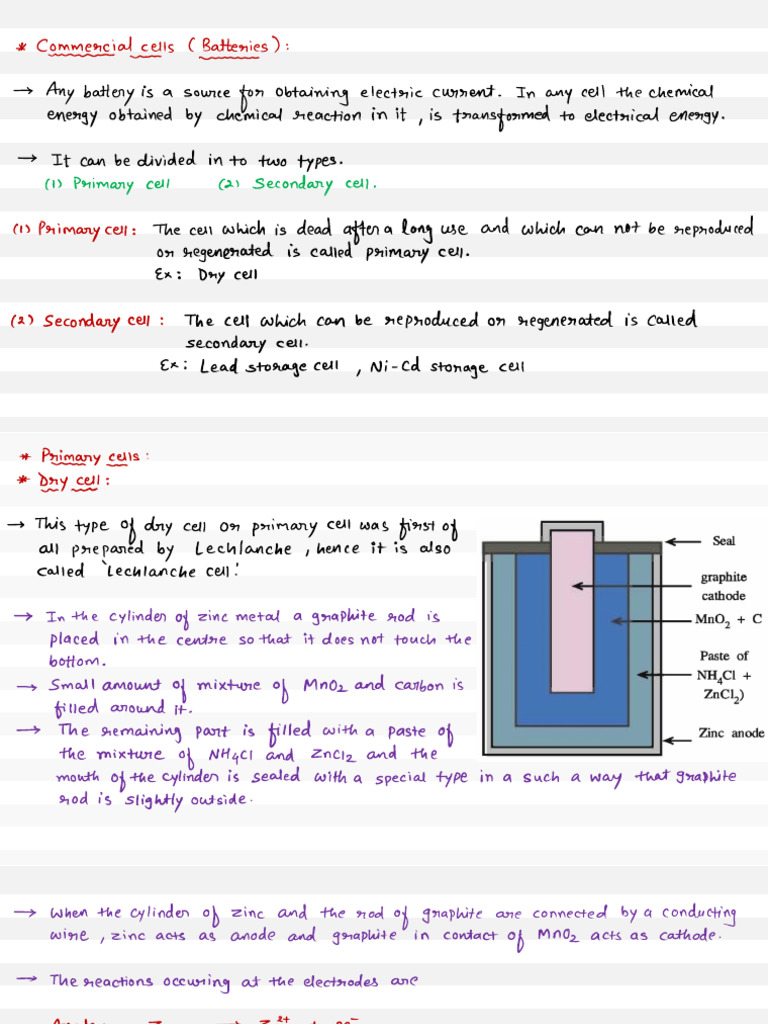 * Commercial cells (Batteries):
→ Any battery is a source for obtaining electric current. In any cell the chemical
energy obtained by chemical reaction in it, is transformed to electrical energy.
→ It can be divided in to two types.
(1) Primary cell (2) Secondary cell.
(1) Primary cell: The cell which is dead after a long use and which can not be reproduced
or regenerated is called primary cell.
Ex: Dry cell
(2) Secondary cell: The cell which can be reproduced or regenerated is called
secondary cell.
Ex: Lead storage cell, Ni-Cd storage cell
* Primary cells:
* Dry cell:
→ This type of dry cell or primary cell was first of
all prepared by Lechlanche, hence it is also
called 'Lechlanche cell'.
→ In the cylinder of zinc metal a graphite rod is
placed in the centre so that it does not touch the
bottom.
→ Small amount of mixture of MnO₂ and carbon is
filled around it.
→ The remaining part is filled with a paste of
the mixture of NH₄Cl and ZnCl₂ and the
mouth of the cylinder is sealed with a special type in a such a way that graphite
rod is slightly outside.
Seal
graphite
cathode
MnO₂ + C
Paste of
NH₄Cl +
ZnCl₂)
Zinc anode
→ When the cylinder of zinc and the rod of graphite are connected by a conducting
wire, zinc acts as anode and graphite in contact of MnO₂ acts as cathode.
→ The reactions occuring at the electrodes are